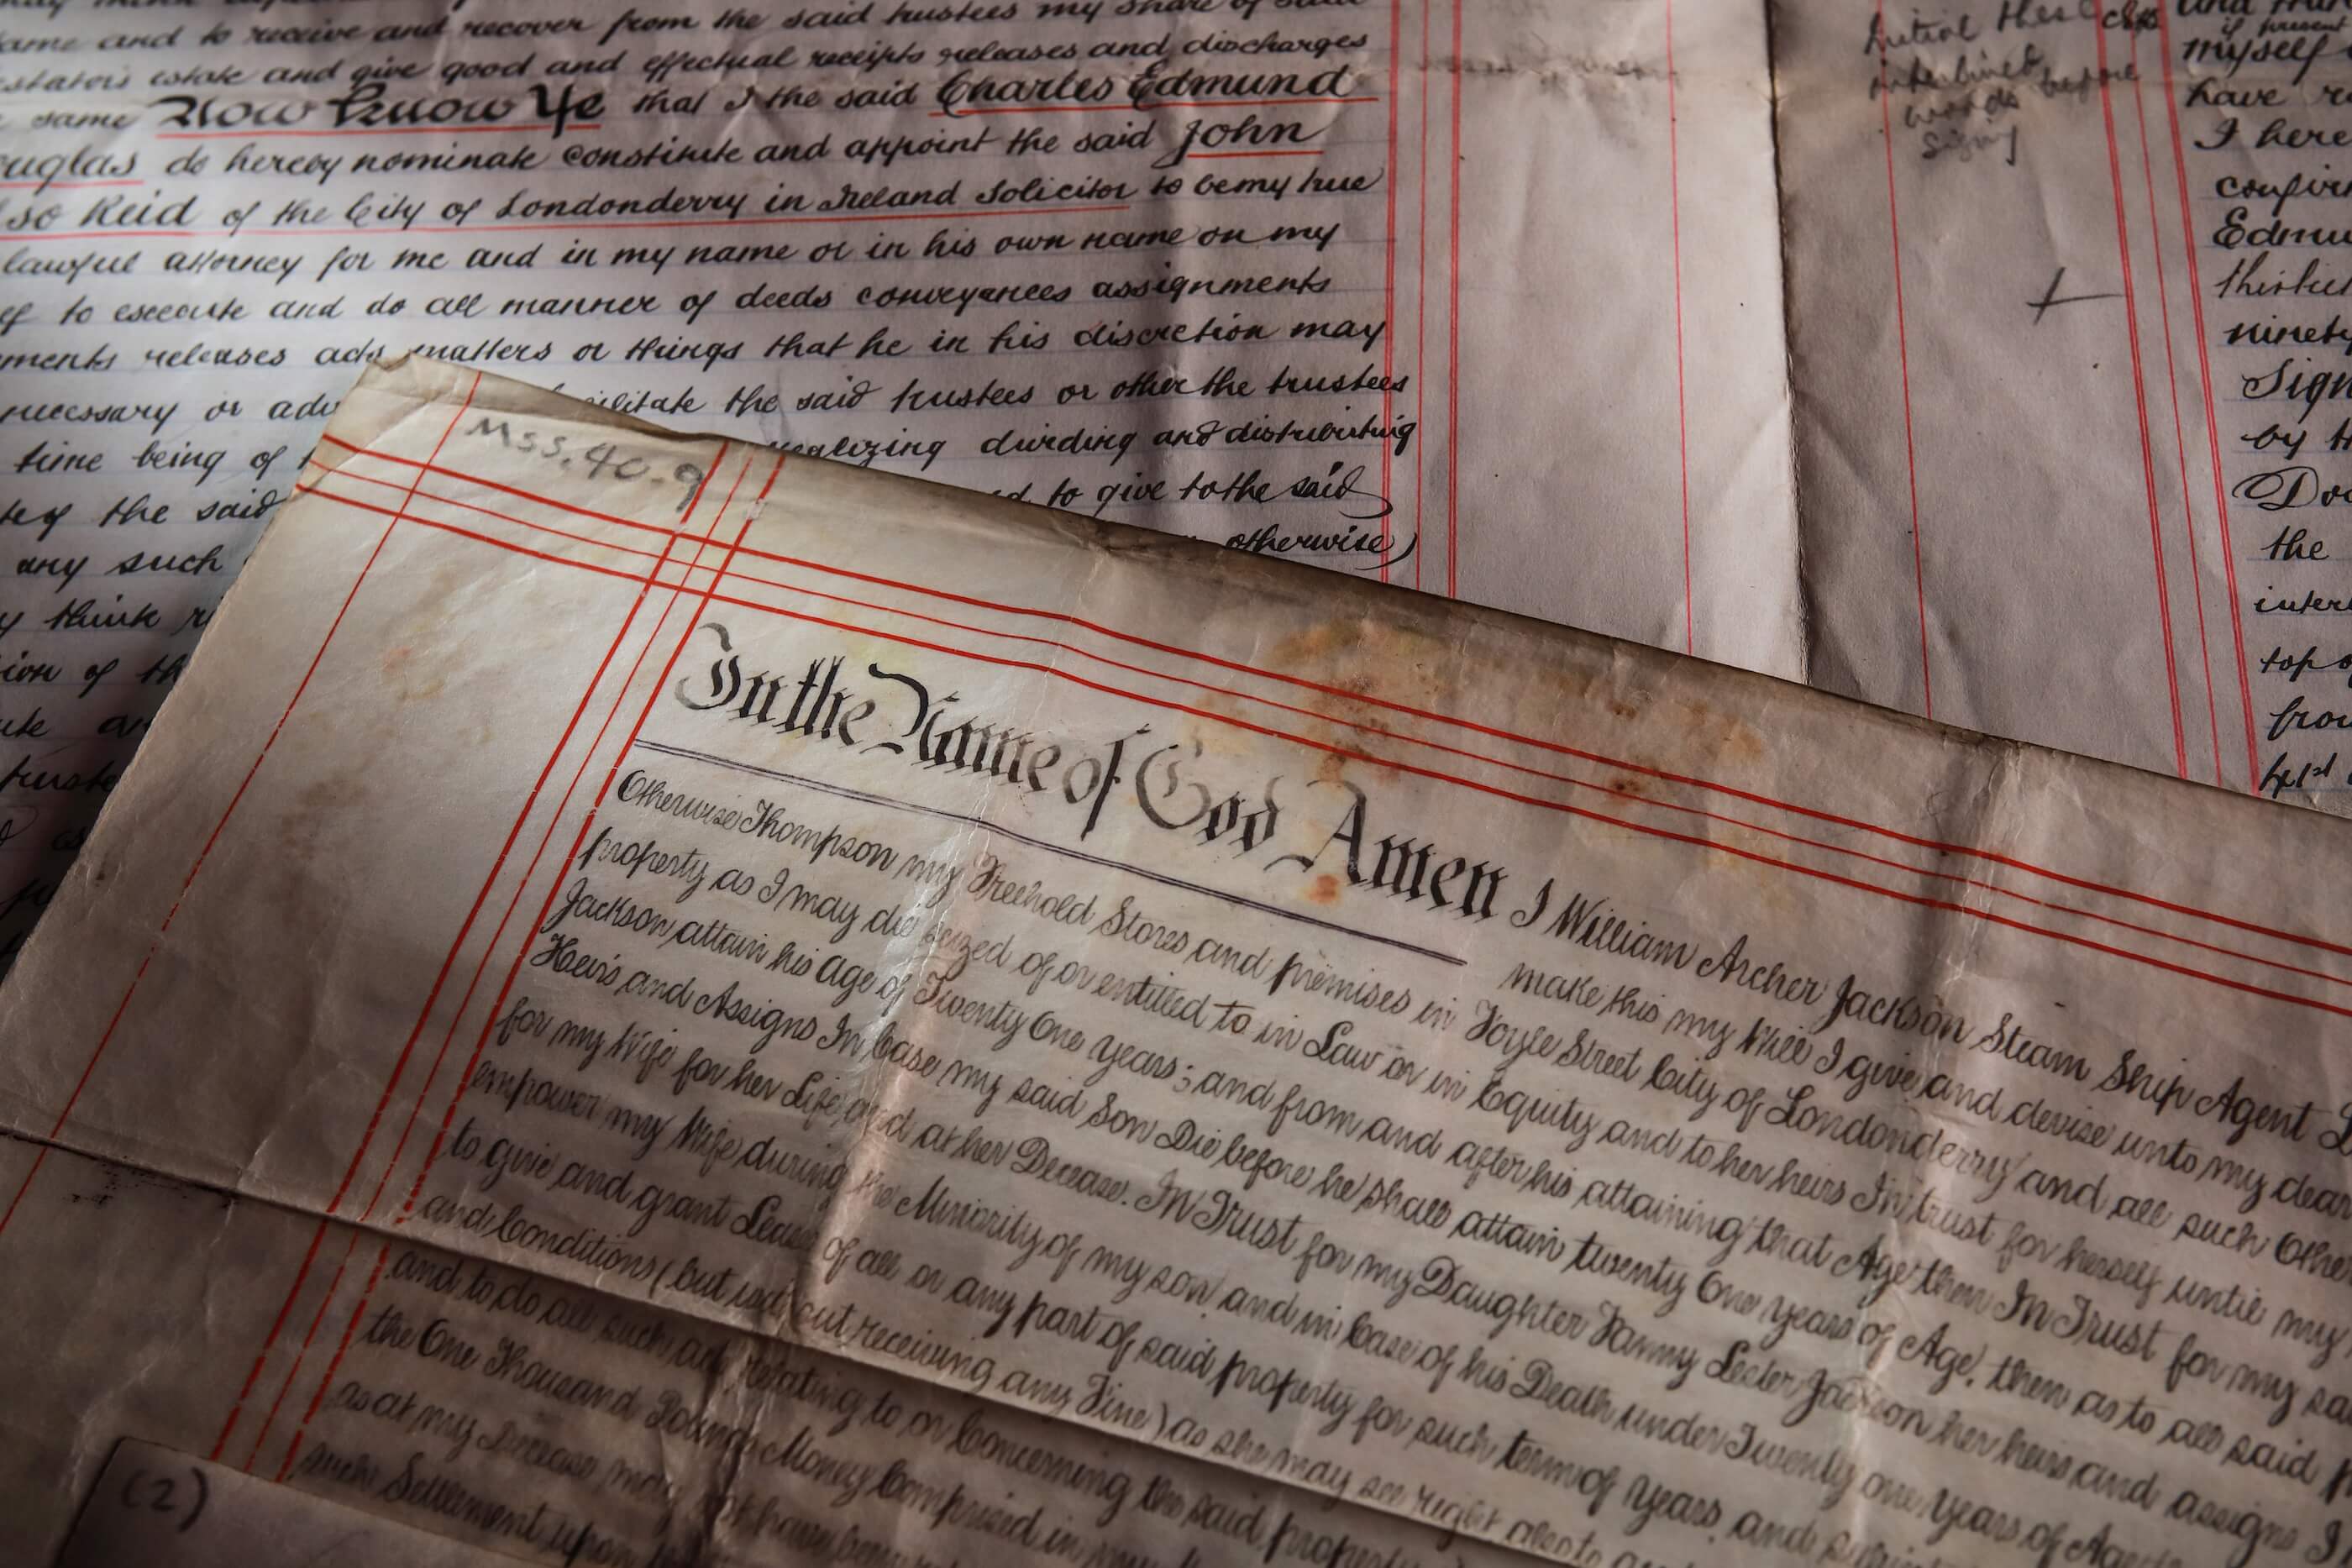 and to receive and recover from the said trustees my share of said
estate and give good and effectual receipts releases and discharges
same Now Know Ye that I the said Charles Edmund
do hereby nominate constitute and appoint the said John
Reid of the City of Londonderry in Ireland Solicitor to be my true
lawful attorney for me and in my name or in his own name on my
to execute and do all manner of deeds conveyances assignments
releases acts matters or things that he in his discretion may
necessary or the said trustees or other the trustees
time being of realizing dividing and distributing
the said to give to the said
any such otherwise)
think
of
Initial these
interlined
words before
Signing
if present
myself
have
I here
Edmu
ninety
Sign
by
the
top
41st
Mss. 40.9
In the Name of God Amen I William Archer Jackson Steam Ship Agent
make this my Will I give and devise unto my dear
Otherwise Thompson my Freehold Stores and premises in Foyle Street City of Londonderry and all such Other
property as I may die seized of or entitled to in Law or in Equity and to her heirs In trust for herself until my
Jackson attain his Age of Twenty One years; and from and after his attaining that Age then In Trust for my
Heirs and Assigns In Case my said Son Die before he shall attain twenty One years of Age, then as to all said
for my Wife for her Life and at her Decease. In Trust for my Daughter Fanny Lester Jackson her heirs and assigns I
empower my Wife during the Minority of my son and in Case of his Death under Twenty one years of Age
to give and grant Leases of all or any part of said property for such term of years and
and Conditions (but not receiving any Fine) as she may see right also to
and to do all such relating to or Concerning the said
the One Thousand Pounds Money Comprised in
as at my Decease may not have been
such Settlement upon
(2)